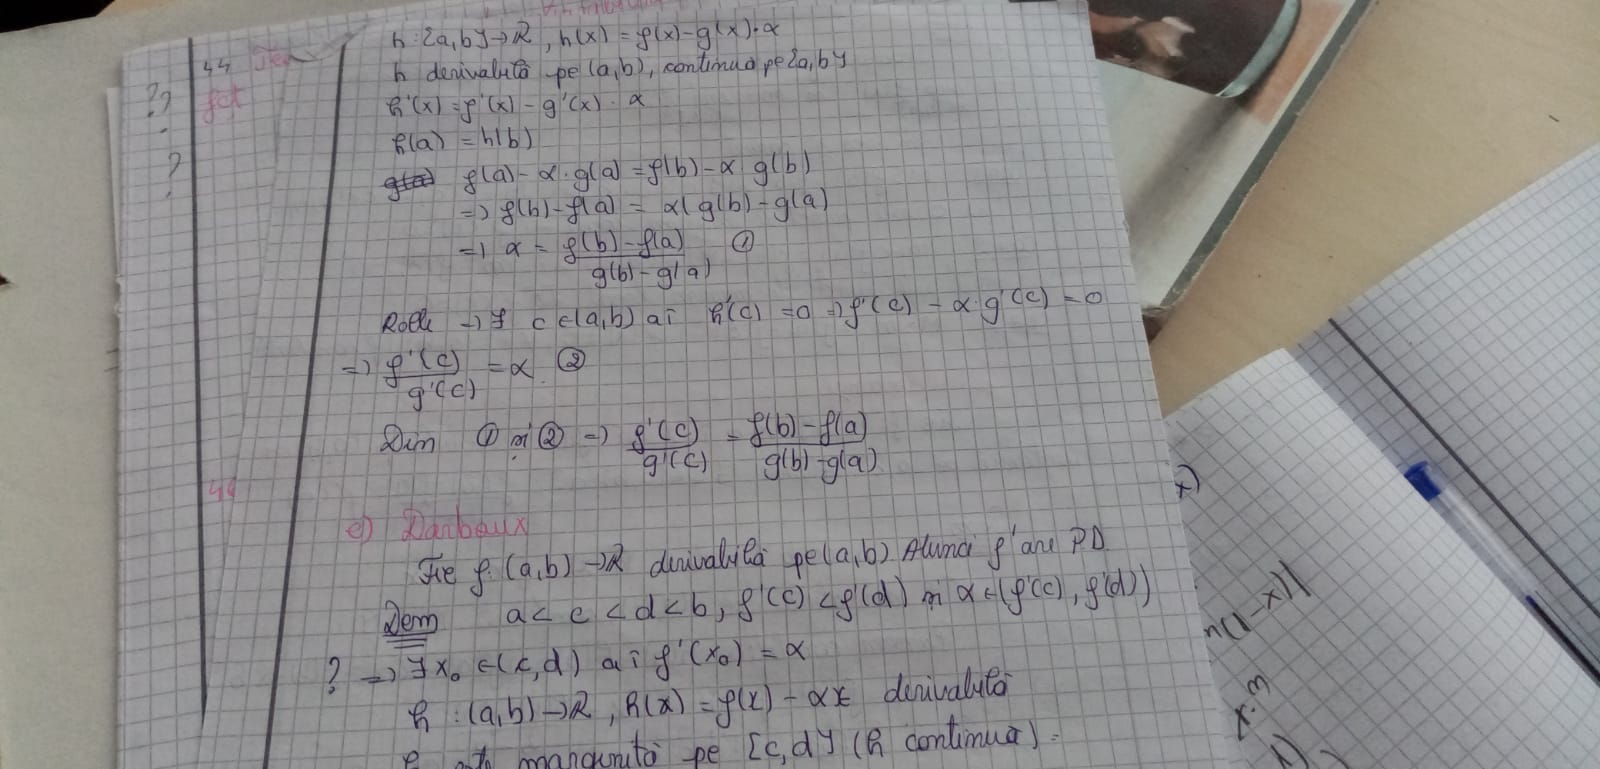 h : [a,b] → R, h(x) = f(x) - g(x)·α
h derivabilă pe (a,b), continuă pe [a,b]
h'(x) = f'(x) - g'(x) · α
h(a) = h(b)
f(a) - α · g(a) = f(b) - α g(b)
=> f(b) - f(a) = α( g(b) - g(a)
=> α = f(b) - f(a) / g(b) - g(a) ①
Rolle => ∃ c ∈ (a,b) aî h'(c) = 0 => f'(c) - α · g'(c) = 0
=> f'(c) / g'(c) = α. ②
Din ① și ② => f'(c) / g'(c) = f(b) - f(a) / g(b) - g(a)
e) Darboux
Fie f: (a,b) → R derivabilă pe (a,b) Atunci f' are P.D.
Dem a < c < d < b, f'(c) < f'(d) și α ∈ (f'(c), f'(d))
? => ∃ x₀ ∈ (c,d) aî f'(x₀) = α
h : (a,b) → R, h(x) = f(x) - αx derivabilă
h este mărginită pe [c,d] (h continuă) =
44
fct
??
?
44
x)
n(1-x))
x·3